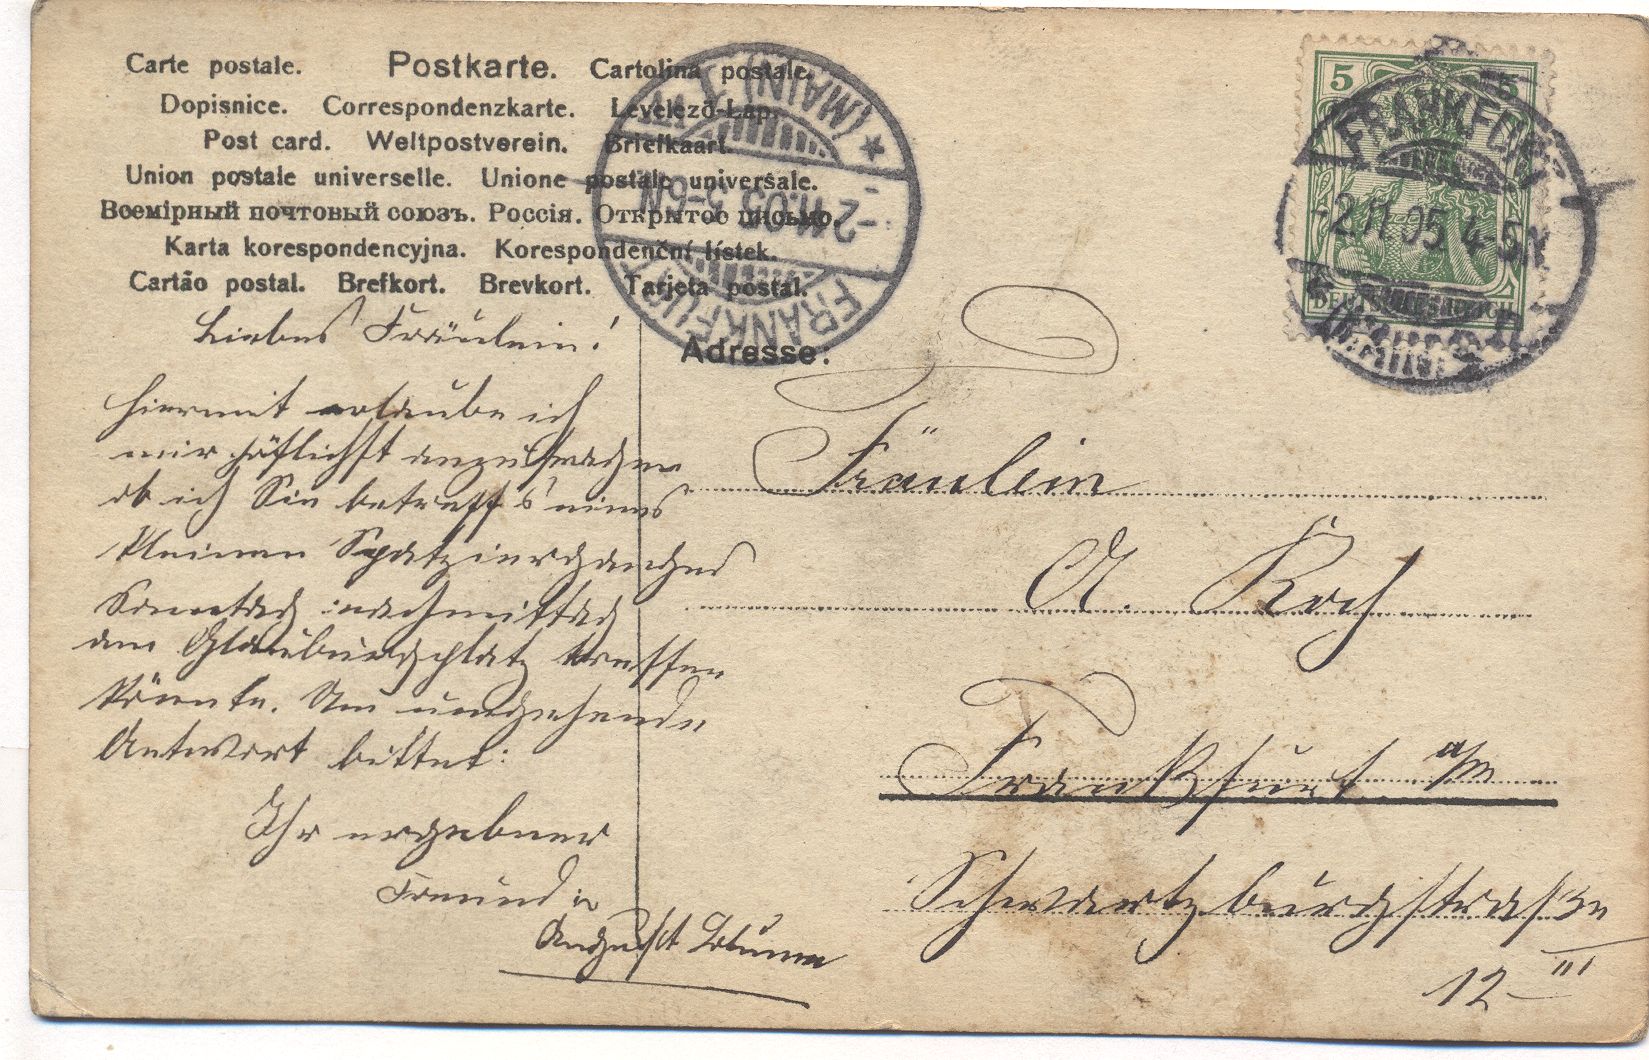 Carte postale. Postkarte. Cartolina postale.
Dopisnice. Correspondenzkarte. Levelező-Lap.
Post card. Weltpostverein. Briefkaart.
Union postale universelle. Unione postale universale.
Всемірный почтовый союзъ. Россія. Открытое письмо.
Karta korespondencyjna. Korespondenční lístek.
Cartão postal. Brefkort. Brevkort. Tarjeta postal.
Adresse:
FRANKFURT (MAIN) 1
-2.11.05. 5-6N
5 5
DEUTSCHES REICH
FRANKFURT
-2.11.05. 4-5N
Liebes Fräulein!
Hiermit erlaube ich
mir höflichst anzufragen
ob ich Sie betreff's eines
kleinen Spatzierganges
Sonntag nachmittag
am Glauburgplatz treffen
könnte. Um umgehende
Antwort bittet:
Ihr ergebner
Freund
August
Fräulein
A. Koch
Frankfurt a/M
Schwartzburgstraße
12 III